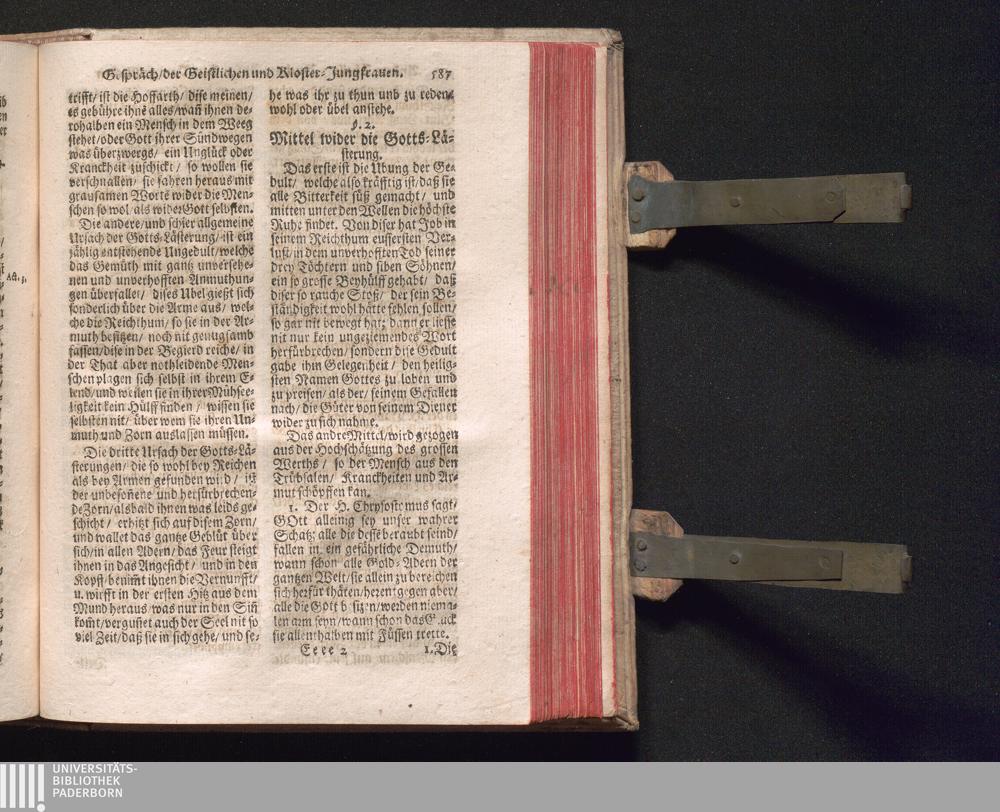 Gespräch/der Geistlichen und Kloster-Jungfrauen. 587
trifft/ ist die Hoffarth/ dise meinen/
es gebühre ihnē alles/wañ ihnen de-
rohalben ein Mensch in dem Weeg
stehet/oder Gott ihrer Sündwegen
was überzwergs/ ein Unglück oder
Kranckheit zuschickt/ so wollen sie
verschnallen/ sie fahren heraus mit
grausamen Worte wider die Men-
schen so wol/als wider Gott selbsten.
Die andere/und schier allgemeine
Ursach der Gotts-Lästerung/ist ein
jählig entstehende Ungedult/welche
das Gemüth mit gantz unversehe-
nen und unverhofften Anmuthun-
gen überfallet/ dises Ubel gießt sich
sonderlich über die Arme aus/ wel-
che die Reichthum/ so sie in der Ar-
muth besitzen/ noch nit genugsamb
fassen/dise in der Begierd reiche/ in
der That aber nothleidende Men-
schen plagen sich selbst in ihrem E-
lend/und weilen sie in ihrer Mühsee-
ligkeit kein Hülff finden/ wissen sie
selbsten nit/ über wem sie ihren Un-
muth und Zorn auslassen müssen.
Die dritte Ursach der Gotts-Lä-
sterungen/ die so wohl bey Reichen
als bey Armen gefunden wird/ ist
der unbesoñene und herfürbrechen-
de Zorn/alsbald ihnen was leids ge-
schicht/ erhitzt sich auf disem Zorn/
und wallet das gantze Geblüt über
sich/in allen Adern/das Feur steigt
ihnen in das Angesicht/ und in den
Kopff/benim̃t ihnen die Vernunfft/
u. wirfft in der ersten Hitz aus dem
Mund heraus/was nur in den Siñ
kom̃t/vergustet auch der Seel nit so
viel Zeit/daß sie in sich gehe/ und se-
he was ihr zu thun und zu reden/
wohl oder übel anstehe.
§. 2.
Mittel wider die Gotts-Lä-
sterung.
Das erste ist die Ubung der Ge-
dult/ welche also kräfftig ist/daß sie
alle Bitterkeit süß gemacht/ und
mitten unter den Wellen die höchste
Ruhe findet. Von diser hat Job in
seinem Reichthum eussersten Ver-
lust/in dem unverhofften Tod seiner
drey Töchtern und siben Söhnen/
ein so grosse Beyhülff gehabt/ daß
diser so rauche Stoß/ der sein Be-
ständigkeit wohl hätte fehlen sollen/
so gar nit bewegt hat; dann er liesse
nit nur kein ungeziemendes Wort
herfürbrechen/ sondern dise Gedult
gabe ihm Gelegenheit/ den heilig-
sten Namen Gottes zu loben und
zu preisen/ als der/ seinem Gefallen
nach/ die Güter von seinem Diener
wider zu sich nahme.
Das andre Mittel/wird gezogen
aus der Hochschätzung des grossen
Werths/ so der Mensch aus den
Trübsalen/ Kranckheiten und Ar-
mut schöpffen kan.
1. Der H. Chrysostomus sagt/
GOtt alleinig sey unser wahrer
Schatz; alle die dessē beraubt seind/
fallen in ein gefährliche Demuth/
wann schon alle Gold-Adern der
gantzen Welt/sie allein zu bereichen
sich herfür thäten/hergegen aber/
alle die Gott besitzen/werden niema-
len arm seyn/wann schon das Glück
sie allenthalben mit Füssen trette.
Eeee 2 1. Die
Act. 5.
UNIVERSITÄTS-
BIBLIOTHEK
PADERBORN